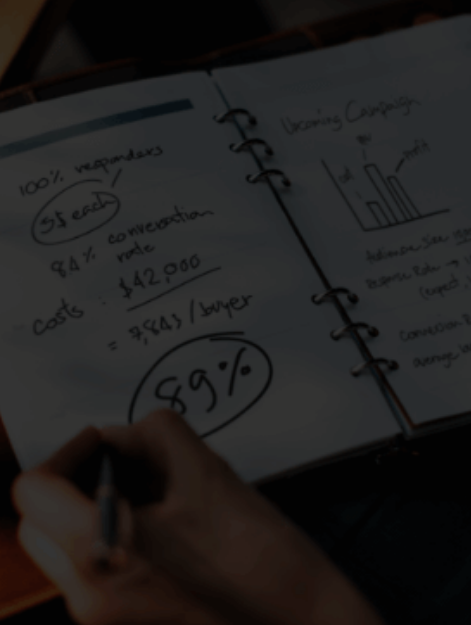 100% responders
5$ each
84% conversation
rate
costs - $42,000
= 7,843 /buyer
89%
Upcoming Campaign
profit
Audience size
Response Rate →
(expect
conversion R
average